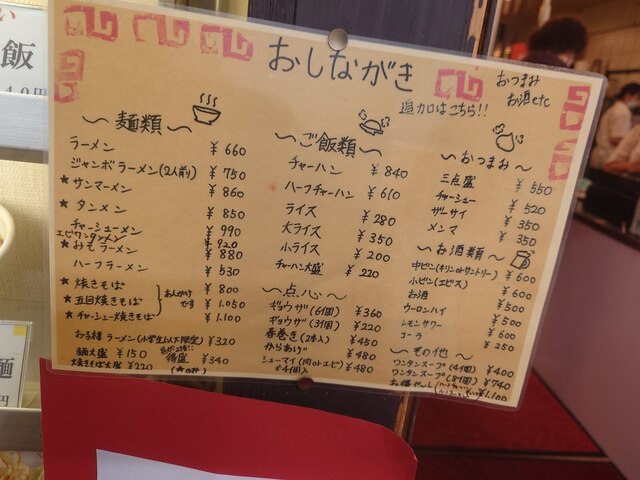 おしながき
おつまみ
お酒etc
追加はこちら!!
〜麺類〜
ラーメン ¥660
ジャンボラーメン(2人前) ¥750
★サンマーメン ¥860
★タンメン ¥850
チャーシューメン ¥990
エビワンタンメン ¥920
★おもラーメン ¥880
ハーフラーメン ¥530
★焼きそば ¥800
★五目焼きそば ¥1.050
★チャーシュー焼きそば ¥1.100
あんかけです
お子様ラーメン(小学生以下限定) ¥320
麺大盛 ¥150
特盛 ¥340
焼きそば大盛 ¥220
(★のみ)
〜ご飯類〜
チャーハン ¥840
ハーフチャーハン ¥610
ライス ¥280
大ライス ¥350
小ライス ¥200
チャーハン大盛 ¥220
〜点心〜
ギョウザ(6個) ¥360
ギョウザ(3個) ¥220
春巻き(2本) ¥450
からあげ ¥480
シューマイ(肉orエビ) ¥480
※4個入
〜おつまみ〜
三点盛 ¥550
チャーシュー ¥520
ザーサイ ¥350
メンマ ¥350
〜お酒類〜
中ビン(キリンorサントリー) ¥600
小ビン(エビス) ¥600
お酒 ¥500
ウーロンハイ ¥500
レモンサワー ¥500
コーラ ¥250
〜その他〜
ワンタンスープ(4個) ¥400
ワンタンスープ(8個) ¥740
¥1.100
飯
麺